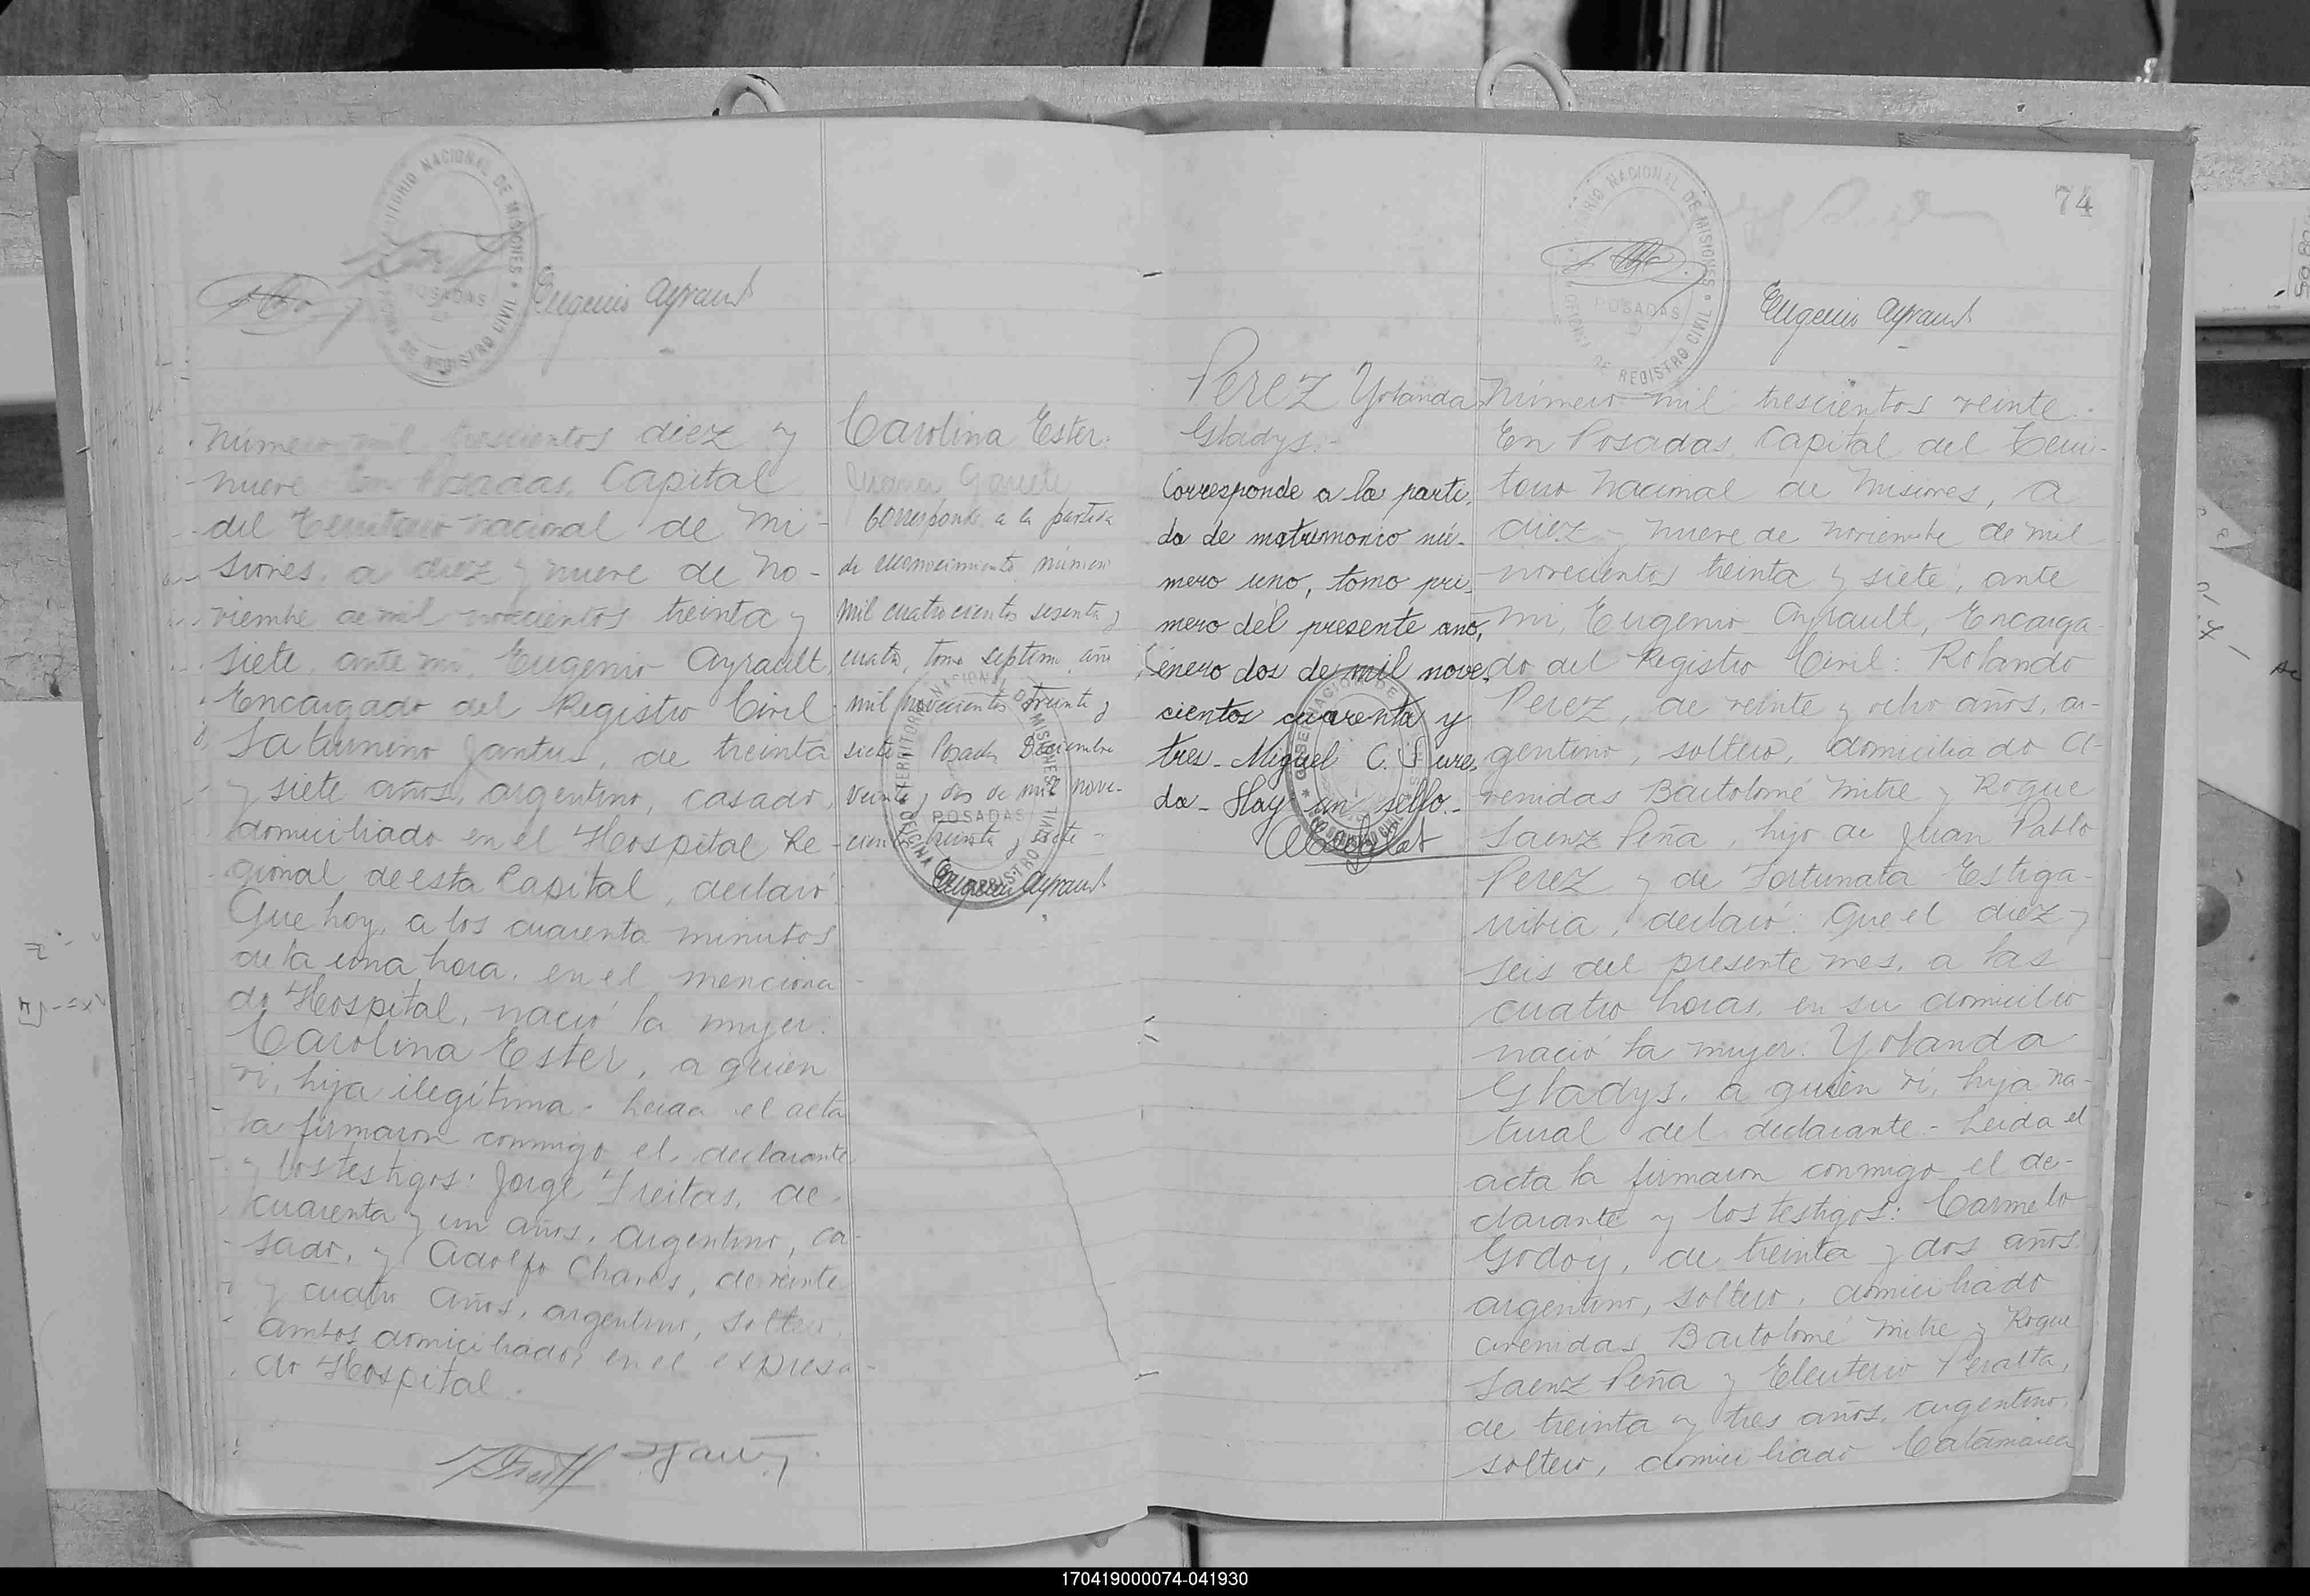 TERRITORIO NACIONAL DE MISIONES
OFICINA DE REGISTRO CIVIL
POSADAS
Eugenio Ayrault
Número mil trescientos diez y
nueve En Posadas, Capital
del Territorio Nacional de Mi-
siones, a diez y nueve de No-
viembre de mil novecientos treinta y
siete, ante mi, Eugenio Ayrault,
Encargado del Registro Civil:
Saturnino Jantus, de treinta
y siete años, argentino, casado,
domiciliado en el Hospital Re-
gional de esta Capital, declaró:
Que hoy, a los cuarenta minutos
de la una hora, en el menciona-
do Hospital, nació la mujer:
Carolina Ester, a quien
vi, hija ilegítima - Leida el acta
la firmaron conmigo el declarante
y los testigos: Jorge Freitas, de
cuarenta y un años, argentino, ca-
sado, y Adolfo Chaves, de veinte
y cuatro años, argentino, soltero
ambos domiciliados en el expresa-
do Hospital.
Carolina Ester
Juana Gauete
Corresponde a la partida
de reconocimiento número
mil cuatrocientos sesenta y
cuatro, tomo septimo, año
mil novecientos treinta y
siete. Posadas Diciembre
veinte y dos de mil nove-
cientos treinta y siete -
TERRITORIO NACIONAL DE MISIONES
OFICINA DE REGISTRO CIVIL
POSADAS
Eugenio Ayrault
74
TERRITORIO NACIONAL DE MISIONES
OFICINA DE REGISTRO CIVIL
POSADAS
Eugenio Ayrault
Perez Yolanda
Gladys.-
Corresponde a la parti-
da de matrimonio nú-
mero uno, tomo pri-
mero del presente año,
Enero dos de mil nove-
cientos cuarenta y
tres - Miguel C. Sure-
da - Hay un sello.-
Número mil trescientos veinte.-
En Posadas, Capital del Terri-
torio Nacional de Misiones, a
diez y nueve de noviembre de mil
novecientos treinta y siete, ante
mi, Eugenio Ayrault, Encarga-
do del Registro Civil: Rolando
Perez, de veinte y ocho años, ar-
gentino, soltero, domiciliado A-
venidas Bartolomé Mitre y Roque
Saenz Peña, hijo de Juan Pablo
Perez y de Fortunata Estiga-
rribia, declaró: Que el diez y
seis del presente mes, a las
cuatro horas, en su domicilio
nació la mujer: Yolanda
Gladys, a quien vi, hija na-
tural del declarante - Leida el
acta la firmaron conmigo el de-
clarante y los testigos: Carmelo
Godoy, de treinta y dos años
argentino, soltero, domiciliado
avenidas Bartolomé Mitre y Roque
Saenz Peña y Eleuterio Peralta,
de treinta y tres años, argentino,
soltero, domiciliado Catamarca
170419000074-041930